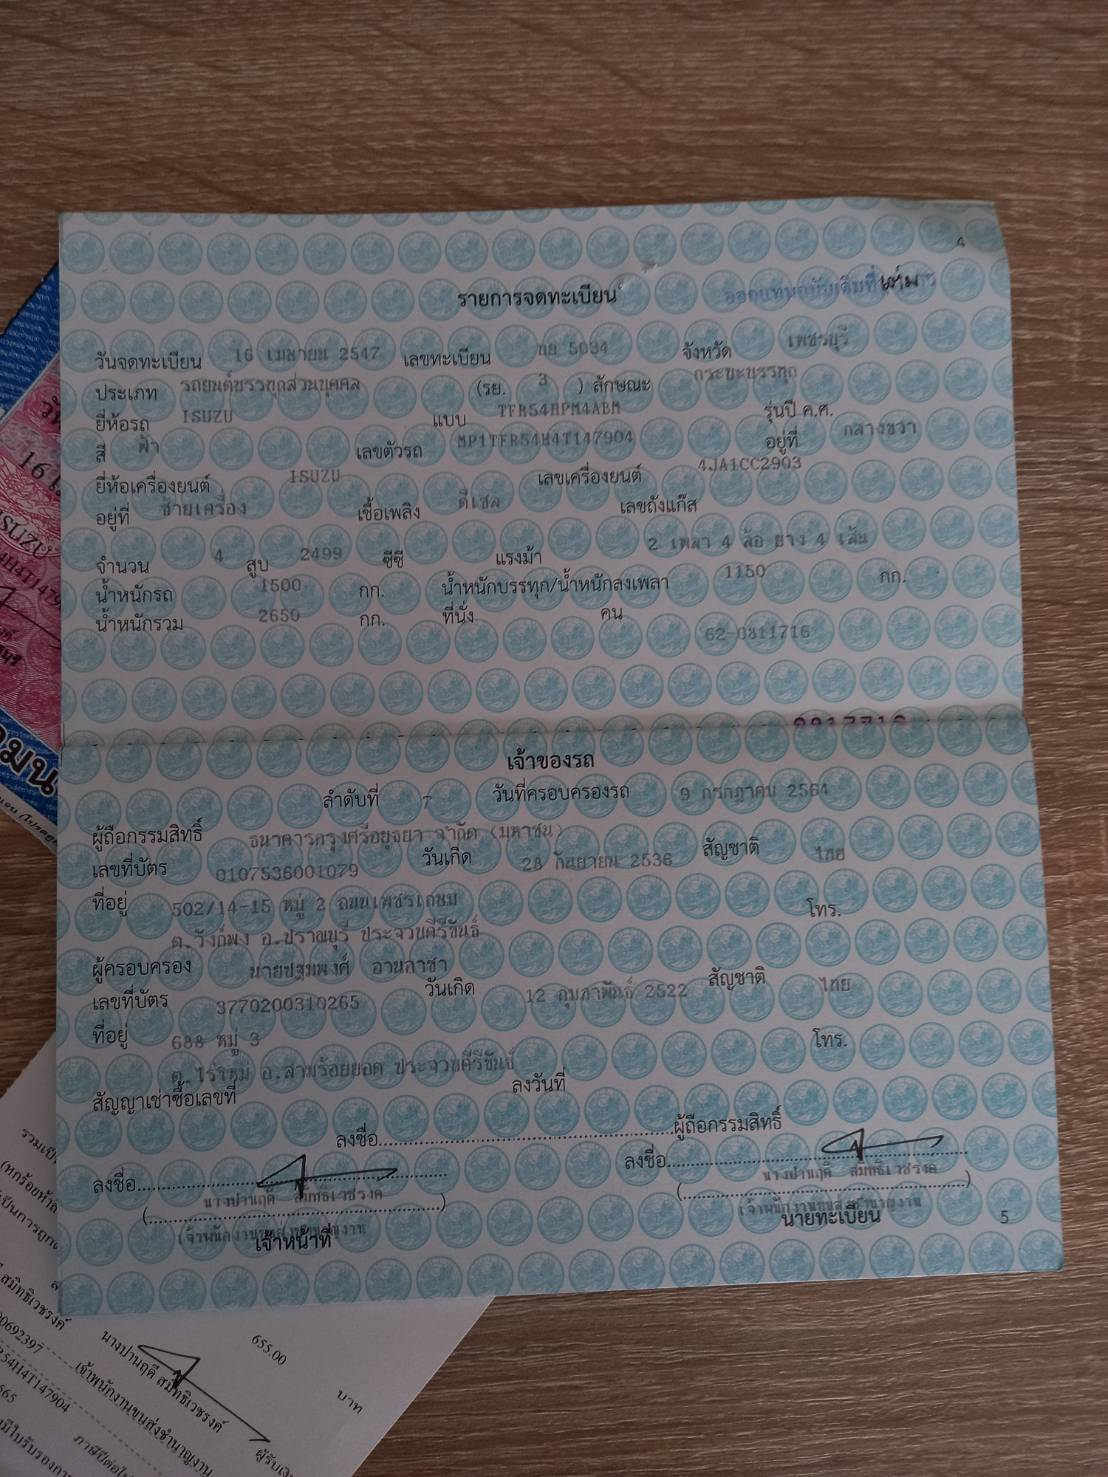 4
รายการจดทะเบียน
ออกแทนฉบับเดิมที่
วันจดทะเบียน 16 เมษายน 2547 เลขทะเบียน 5034 จังหวัด เพชรบุรี
ประเภท รถยนต์บรรทุกส่วนบุคคล (รย. 3 ) ลักษณะ กระบะบรรทุก
ยี่ห้อรถ ISUZU แบบ TFR54HPM4ABM รุ่นปี ค.ศ.
สี ฟ้า เลขตัวรถ MP1TFR54H4T147904 อยู่ที่ กลางขวา
ยี่ห้อเครื่องยนต์ ISUZU เลขเครื่องยนต์ 4JA1CC2903
อยู่ที่ ซ้ายเครื่อง เชื้อเพลิง ดีเซล เลขถังแก๊ส
จำนวน 4 สูบ 2499 ซีซี แรงม้า 2 เพลา 4 ล้อ ยาง 4 เส้น
น้ำหนักรถ 1500 กก. น้ำหนักบรรทุก/น้ำหนักลงเพลา 1150 กก.
น้ำหนักรวม 2650 กก. ที่นั่ง คน
62-0811716
เจ้าของรถ
ลำดับที่ 7 วันที่ครอบครองรถ 9 กรกฎาคม 2564
ผู้ถือกรรมสิทธิ์ ธนาคารกรุงศรีอยุธยา จำกัด (มหาชน)
เลขที่บัตร 0107536001079 วันเกิด 28 กันยายน 2536 สัญชาติ ไทย
ที่อยู่ 502/14-15 หมู่ 2 ถนนเพชรเกษม โทร.
ต.วังก์พง อ.ปราณบุรี ประจวบคีรีขันธ์
ผู้ครอบครอง นายปฐมพงศ์ อานลาชา
เลขที่บัตร 3770200310265 วันเกิด 12 กุมภาพันธ์ 2522 สัญชาติ ไทย
ที่อยู่ 688 หมู่ 3 โทร.
ต.ไร่ใหม่ อ.สามร้อยยอด ประจวบคีรีขันธ์
สัญญาเช่าซื้อเลขที่ ลงวันที่
ลงชื่อ ผู้ถือกรรมสิทธิ์
ลงชื่อ ลงชื่อ
(นางปานฤดี สมิทธิเวชรงค์) (นางปานฤดี สมิทธิเวชรงค์)
เจ้าพนักงานขนส่งชำนาญงาน เจ้าพนักงานขนส่งชำนาญงาน
เจ้าหน้าที่ นายทะเบียน
5
655.00 บาท
นางปานฤดี สมิทธิเวชรงค์
เจ้าพนักงานขนส่งชำนาญงาน